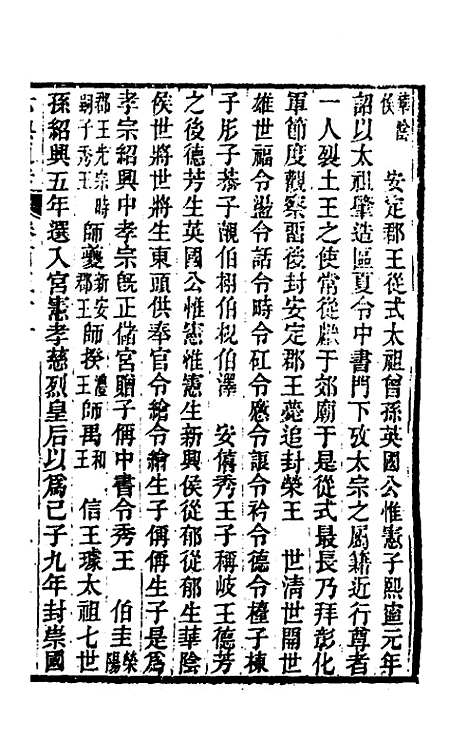 華陰侯　安定郡王從式太祖曾孫英國公惟憲子熙寧元年
詔以太祖肇造區夏令中書門下攷太宗之屬籍近行尊者
一人裂土王之使常從獻于郊廟于是從式最長乃拜彰化
軍節度觀察留後封安定郡王薨追封榮王　世清世開世
雄世福令盪令話令時令矼令懬令詪令衿令德令𢷋子棟
子彤子恭子覿伯栩伯柷伯澤　安僖秀王子稱岐王德芳
之後德芳生英國公惟憲惟憲生新興侯從郁從郁生華陰
侯世將世將生東頭供奉官令繪令繪生子偁偁生子是為
孝宗紹興中孝宗旣正儲宮贈子偁中書令秀王　伯圭榮陽
郡王光宗時嗣子秀王　師夔新安郡王　師揆澧王師禹和王　信王璩太祖七世
孫紹興五年選入宮憲孝慈烈皇后以為己子九年封崇國